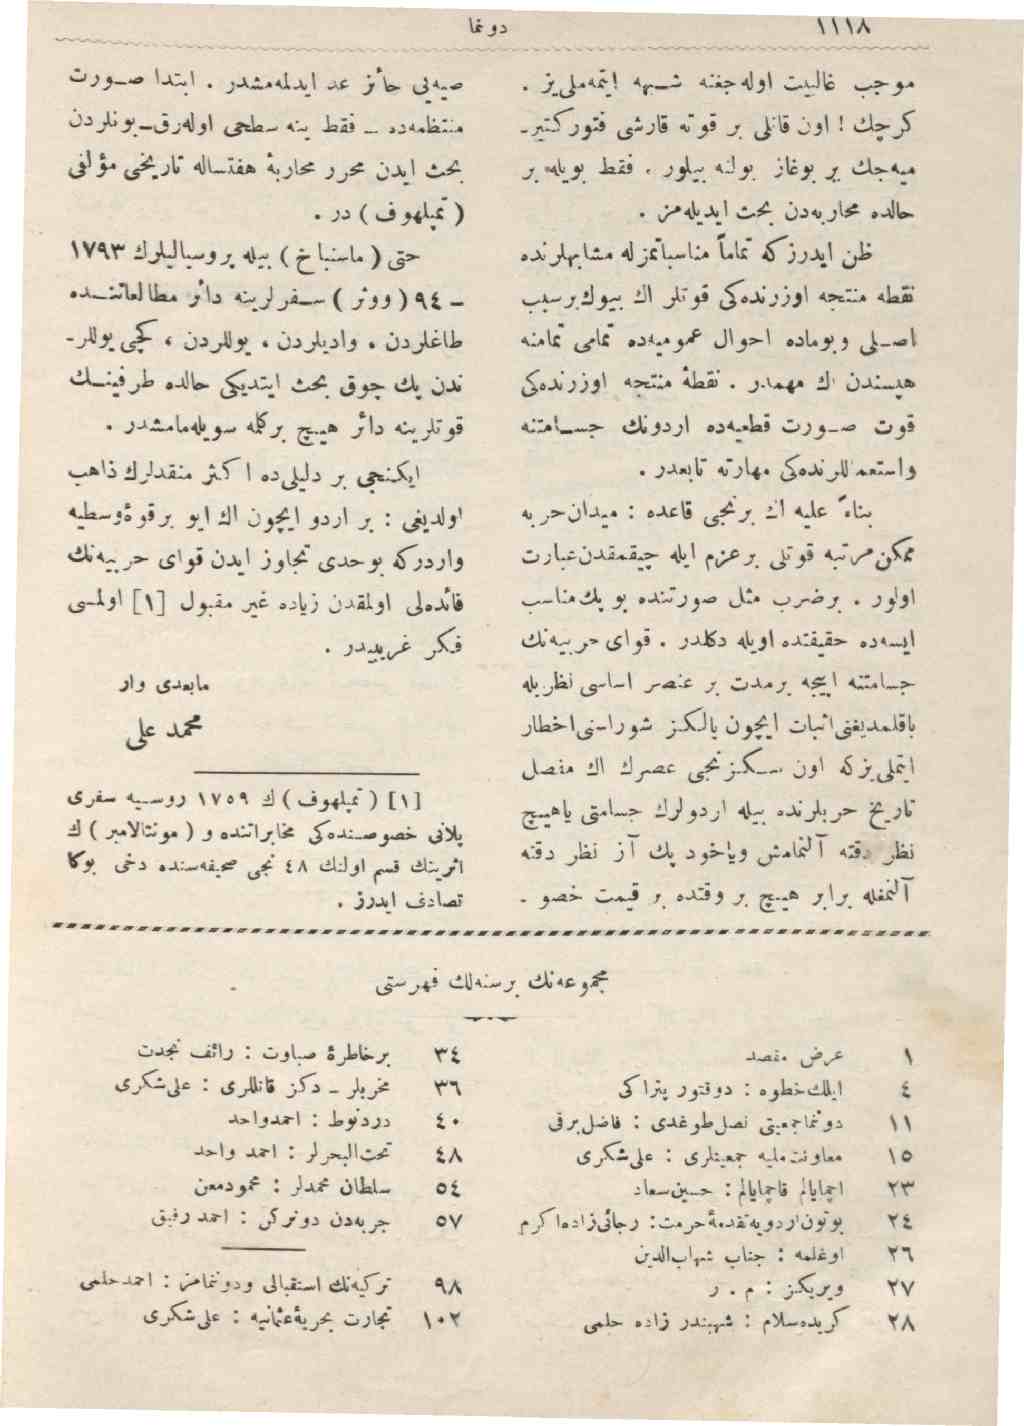 ١١١٨
دوغما
موجب غالبيت اوله جغنه شـبهه ايتمه‌ملى‌يز .
كرچك ! اون قاتلى بر قوته قارشى فتور كتير-
ميه‌جك بر بوغاز بولنه بيلور . فقط بويله بر
حالده محاربه‌دن بحث ايديله‌مز .
ظن ايدرزكه تماماً مناسباتمزله مشابهلرنده
نقطه منتجه اوزرنده‌كى قوتلر اك بيوك برسبب
اصـلى وبوماده احوال عموميه‌ده تمامى تمامنه
هپسندن اك مهمدر . نقطهٔ منتجه اوزرنده‌كى
قوت صـورت قطعيه‌ده اردونك جسـامتنه
واستعماللرنده‌كى مهارته تابعدر .
بناءً عليه اك برنجى قاعده : ميدان‌حربه
ممكن‌مرتبه قوتلى برعزم ايله چيقمقدن‌عبارت
اولور . برضرب مثل صورتنده بو پك‌مناسب
ايسه‌ده حقيقتده اويله دكلدر . قواى حربيه‌نك
جسامتنه اپيجه برمدت بر عنصر اساسى نظريله
باقلمديغنى اثبات ايچون يالكز شوراسنى‌اخطار
ايتملى‌يزكه اون سـكزنجى عصرك اك مفصل
تاريخ حربلرنده بيله اردولرك جسامتى ياهيچ
نظر دقته آلنمامش وياخود پك آز نظر دقته
آلنمغله برابر هيچ بر وقتده بر قيمت خصو -
صيه‌يى حائز عد ايدلمه‌مشدر . ابتدا صـورت
منتظمه‌ده _ فقط ينه سطحى اوله‌رق_بونلردن
بحث ايدن محرر محاربهٔ هفتساله تاريخى مؤلفى
( تمپلهوف ) در .
حتى ( ماسنباخ ) بيله پروسياليلرك ١٧٩٣
_ ٩٤ ( ووژ ) سـفرلرينه دائر مطالعاتنـده
طاغلردن ، واديلردن ، يوللردن ، كچى‌يوللر-
ندن پك چوق بحث ايتديكى حالده طرفينـك
قوتلرينه دائر هيچ بركله سويله‌مامشدر .
ايكنجى بر دليلى‌ده اكثر منقدلرك ذاهب
اولديغى : بر اردو ايچون اك ايو برقوهٔ‌وسطيه
واردركه بوحدى تجاوز ايدن قواى حربيه‌نك
فائده‌لى اولمقدن زياده غير مقبول [١] اولمسى
فكر غريبيدر .
مابعدى وار
محمد على
[١] ( تمپلهوف ) ك ١٧٥٩ روسـيه سفرى
پلانى خصوصـنده‌كى مخابراتنده و ( مونتالامبر ) ك
اثرينك قسم اولنك ٤٨ نجى صحيفه‌سنده دخى بوكا
تصادف ايدرز .
مجموعه‌نك برسنه‌لك فهرستى
١ عرض مقصد
٤ ايلك‌خطوه : دوقتور پتراكى
١١ دونماجمعيتى نصل‌طوغدى : فاضل‌برقى
١٥ معاونت‌مليه جمعيتلرى : على‌شكرى
٢٣ احمايالم قاچمايالم : حسين‌سعاد
٢٤ بوتون‌اردويه‌تقدمهٔ‌حرمت : رجائى‌زاده‌اكرم
٢٦ اوغلمه : جناب شهاب‌الدين
٢٧ ويريكز : م . ر
٢٨ كريده‌سلام : شهبندر زاده حلمى
٣٤ برخاطرهٔ صباوت : رائف نجدت
٣٦ مخربلر _ دكز قانللرى : على‌شكرى
٤٠ دردنوط : احمدواحد
٤٨ تحت‌البحرلر : احمد واحد
٥٤ سلطان محمدلر : محمودمعن
٥٧ جربه‌دن دونركن : احمد رفيق
٩٨ تركيه‌نك استقبالى ودونمامز : احمدحلمى
١٠٢ تجارت بحريهٔ‌عثمانيه : على‌شكرى